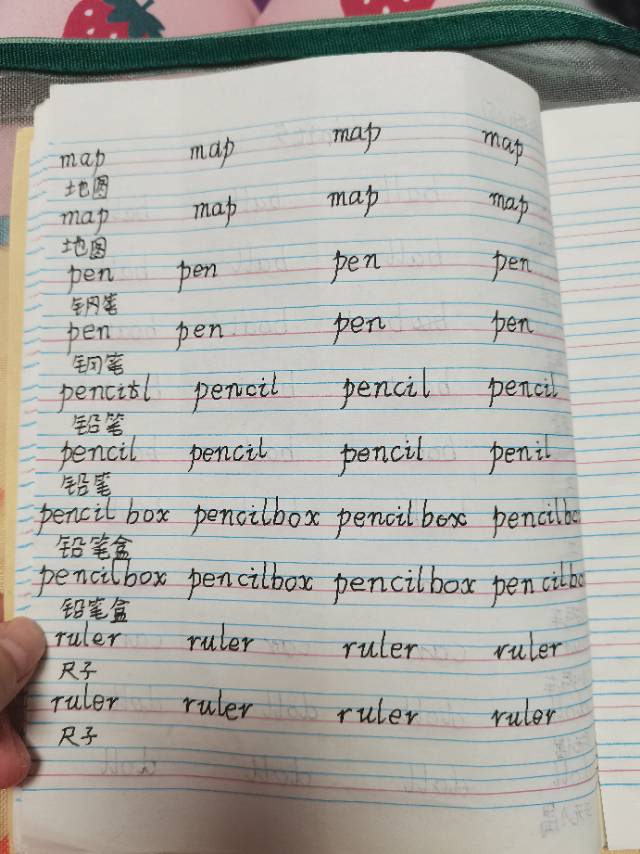 map map map map
地图
map map map map
地图
pen pen pen pen
钢笔
pen pen pen pen
钢笔
pencil pencil pencil
铅笔
pencil pencil pencil penil
铅笔
pencil box pencilbox pencil box pencilbo
铅笔盒
pencilbox pencilbox pencilbox pencilbo
铅笔盒
ruler ruler ruler ruler
尺子
ruler ruler ruler ruler
尺子